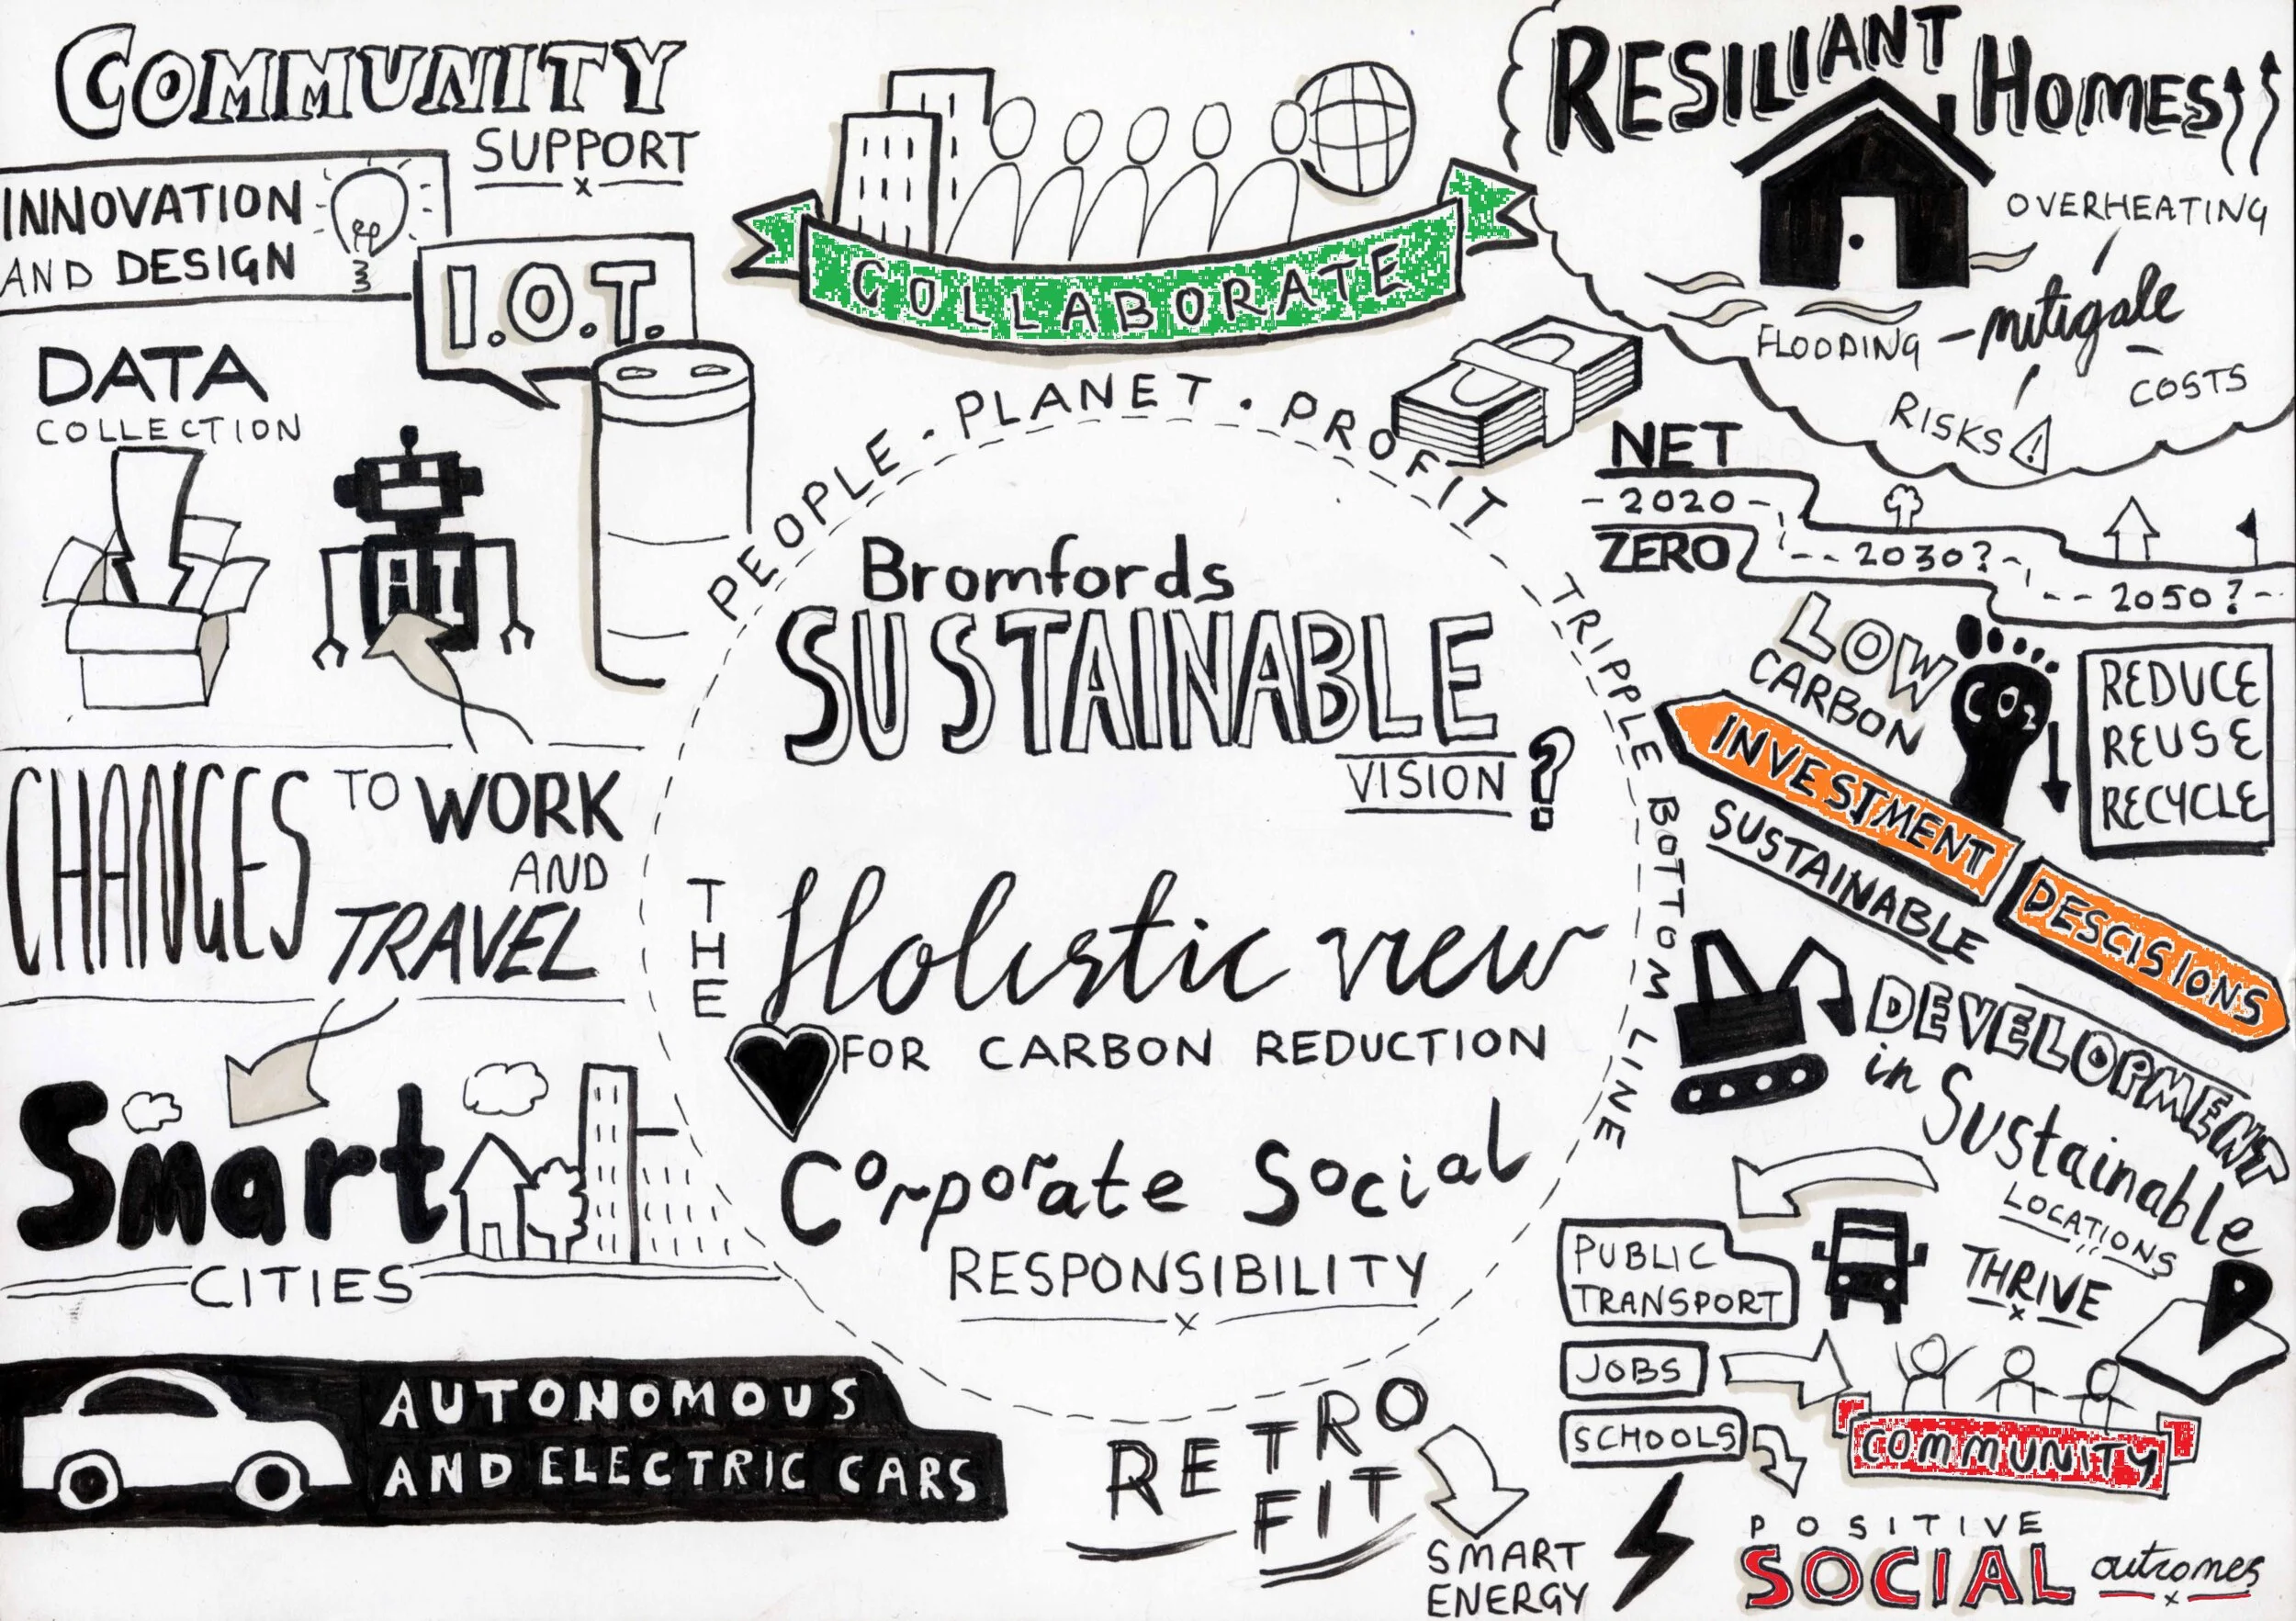 COMMUNITY
SUPPORT
INNOVATION
AND DESIGN
I.O.T.
DATA
COLLECTION
AI
CHANGES TO WORK
AND
TRAVEL
Smart
CITIES
AUTONOMOUS
AND ELECTRIC CARS
COLLABORATE
PEOPLE . PLANET . PROFIT
THE
TRIPPLE BOTTOM LINE
Bromfords
SUSTAINABLE
VISION ?
Holistic view
FOR CARBON REDUCTION
Corporate Social
RESPONSIBILITY
RETRO
FIT
SMART
ENERGY
RESILIANT HOMES
OVERHEATING
FLOODING - mitigate
COSTS
RISKS !
NET
- 2020 -
ZERO
-- 2030? -
-- 2050? -
LOW
CARBON
CO2
REDUCE
REUSE
RECYCLE
INVESTMENT
DESCISIONS
SUSTAINABLE
DEVELOPMENT
in Sustainable
LOCATIONS
PUBLIC
TRANSPORT
THRIVE
JOBS
SCHOOLS
COMMUNITY
POSITIVE
SOCIAL outcomes